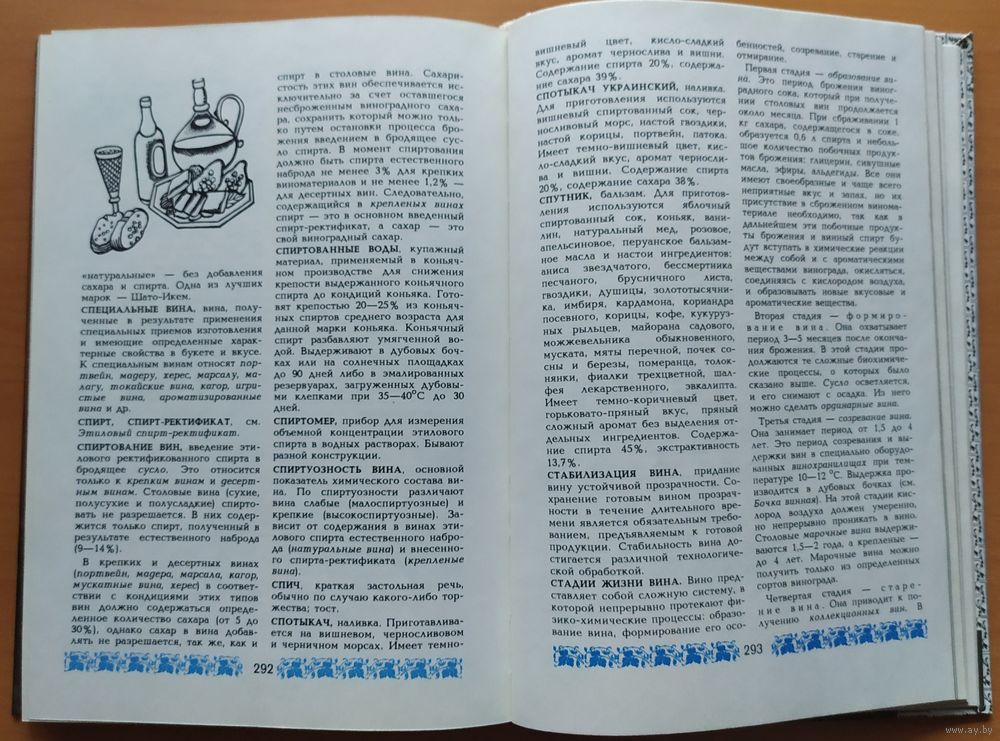 «натуральные» — без добавления
сахара и спирта. Одна из лучших
марок — Шато-Икем.
СПЕЦИАЛЬНЫЕ ВИНА, вина, полу-
ченные в результате применения
специальных приемов изготовления
и имеющие определенные харак-
терные свойства в букете и вкусе.
К специальным винам относят пор-
твейн, мадеру, херес, марсалу, ма-
лагу, токайские вина, кагор, игри-
стые вина, ароматизированные
вина и др.
СПИРТ, СПИРТ-РЕКТИФИКАТ, см.
Этиловый спирт-ректификат.
СПИРТОВАНИЕ ВИН, введение эти-
лового ректификованного спирта в
бродящее сусло. Это относится
только к крепким винам и десерт-
ным винам. Столовые вина (сухие,
полусухие и полусладкие) спирто-
вать не разрешается. В них содер-
жится только спирт, полученный в
результате естественного наброда
(9—14%).
В крепких и десертных винах
(портвейн, мадера, марсала, кагор,
мускатные вина, херес) в соответ-
ствии с кондициями этих типов
вин должно содержаться опреде-
ленное количество сахара (от 5 до
30%), однако сахар в вина добав-
лять не разрешается, так же, как и
спирт в столовые вина. Сахари-
стость этих вин обеспечивается ис-
ключительно за счет оставшегося
несброженным виноградного саха-
ра, сохранить который можно толь-
ко путем остановки процесса бро-
жения введением в бродящее сус-
ло спирта. В момент спиртования
должно быть спирта естественного
наброда не менее 3% для крепких
виноматериалов и не менее 1,2% —
для десертных вин. Следовательно,
содержащийся в крепленых винах
спирт — это в основном введенный
спирт-ректификат, а сахар — это
свой виноградный сахар.
СПИРТОВАННЫЕ ВОДЫ, купажный
материал, применяемый в коньяч-
ном производстве для снижения
крепости выдержанного коньячного
спирта до кондиций коньяка. Гото-
вят крепостью 20—25% из коньяч-
ных спиртов среднего возраста для
данной марки коньяка. Коньячный
спирт разбавляют умягченной во-
дой. Выдерживают в дубовых боч-
ках или на солнечных площадках
до 90 дней либо в эмалированных
резервуарах, загруженных дубовы-
ми клепками при 35—40°С до 30
дней.
СПИРТОМЕР, прибор для измерения
объемной концентрации этилового
спирта в водных растворах. Бывают
разной конструкции.
СПИРТУОЗНОСТЬ ВИНА, основной
показатель химического состава ви-
на. По спиртуозности различают
вина слабые (малоспиртуозные) и
крепкие (высокоспиртуозные). За-
висит от содержания в винах эти-
лового спирта естественного набро-
да (натуральные вина) и внесенно-
го спирта-ректификата (крепленые
вина).
СПИЧ, краткая застольная речь,
обычно по случаю какого-либо тор-
жества; тост.
СПОТЫКАЧ, наливка. Приготавлива-
ется на вишневом, черносливовом
и черничном морсах. Имеет темно-
292
вишневый цвет, кисло-сладкий
вкус, аромат чернослива и вишни.
Содержание спирта 20%, содержа-
ние сахара 39%.
СПОТЫКАЧ УКРАИНСКИЙ, наливка.
Для приготовления используются
вишневый спиртованный сок, чер-
носливовый морс, настой гвоздики,
настой корицы, портвейн, патока.
Имеет темно-вишневый цвет, кис-
ло-сладкий вкус, аромат черносли-
ва и вишни. Содержание спирта
20%, содержание сахара 38%.
СПУТНИК, бальзам. Для приготов-
ления используются яблочный
спиртованный сок, коньяк, вани-
лин, натуральный мед, розовое,
апельсиновое, перуанское бальзам-
ное масла и настои ингредиентов:
аниса звездчатого, бессмертника
песчаного, брусничного листа,
гвоздики, душицы, золототысячни-
ка, имбиря, кардамона, кориандра
посевного, корицы, кофе, кукуруз-
ных рыльцев, майорана садового,
можжевельника обыкновенного,
муската, мяты перечной, почек сос-
ны и березы, померанца, толок-
нянки, фиалки трехцветной, шал-
фея лекарственного, эвкалипта.
Имеет темно-коричневый цвет,
горьковато-пряный вкус, пряный
сложный аромат без выделения от-
дельных ингредиентов. Содержа-
ние спирта 45%, экстрактивность
13,7%.
СТАБИЛИЗАЦИЯ ВИНА, придание
вину устойчивой прозрачности. Со-
хранение готовым вином прозрач-
ности в течение длительного вре-
мени является обязательным требо-
ванием, предъявляемым к готовой
продукции. Стабильность вина до-
стигается различной технологиче-
ской обработкой.
СТАДИИ ЖИЗНИ ВИНА. Вино пред-
ставляет собой сложную систему, в
которой непрерывно протекают фи-
зико-химические процессы: образо-
вание вина, формирование его осо-
бенностей, созревание, старение и
отмирание.
Первая стадия — образование ви-
на. Это период брожения виног-
радного сока, который при получе-
нии столовых вин продолжается
около месяца. При сбраживании 1
кг сахара, содержащегося в соке,
образуется 0,6 л спирта и неболь-
шое количество побочных продук-
тов брожения: глицерин, сивушные
масла, эфиры, альдегиды. Все они
имеют своеобразные и чаще всего
неприятные вкус и запах, но их
присутствие в сброженном винома-
териале необходимо, так как в
дальнейшем эти побочные продук-
ты брожения и винный спирт бу-
дут вступать в химические реакции
между собой и с ароматическими
веществами винограда, окисляться,
соединяясь с кислородом воздуха,
и образовывать новые вкусовые и
ароматические вещества.
Вторая стадия — формиро-
вание вина. Она охватывает
период 3—5 месяцев после оконча-
ния брожения. В этой стадии про-
должаются те сложные биохимиче-
ские процессы, о которых было
сказано выше. Сусло осветляется,
и его снимают с осадка. Из него
можно сделать ординарные вина.
Третья стадия — созревание вина.
Она занимает период от 1,5 до 4
лет. Это период созревания и вы-
держки вин в специально оборудо-
ванных винохранилищах при тем-
пературе 10—12 °С. Выдержка про-
изводится в дубовых бочках (см.
Бочка винная). На этой стадии кис-
лород воздуха должен умеренно,
но непрерывно проникать в вино.
Столовые марочные вина выдержи-
ваются 1,5—2 года, а крепленые —
до 4 лет. Марочные вина можно
получить только из определенных
сортов винограда.
Четвертая стадия — старе-
ние вина. Она приводит к по-
лучению коллекционных вин. В
293
www.ay.by